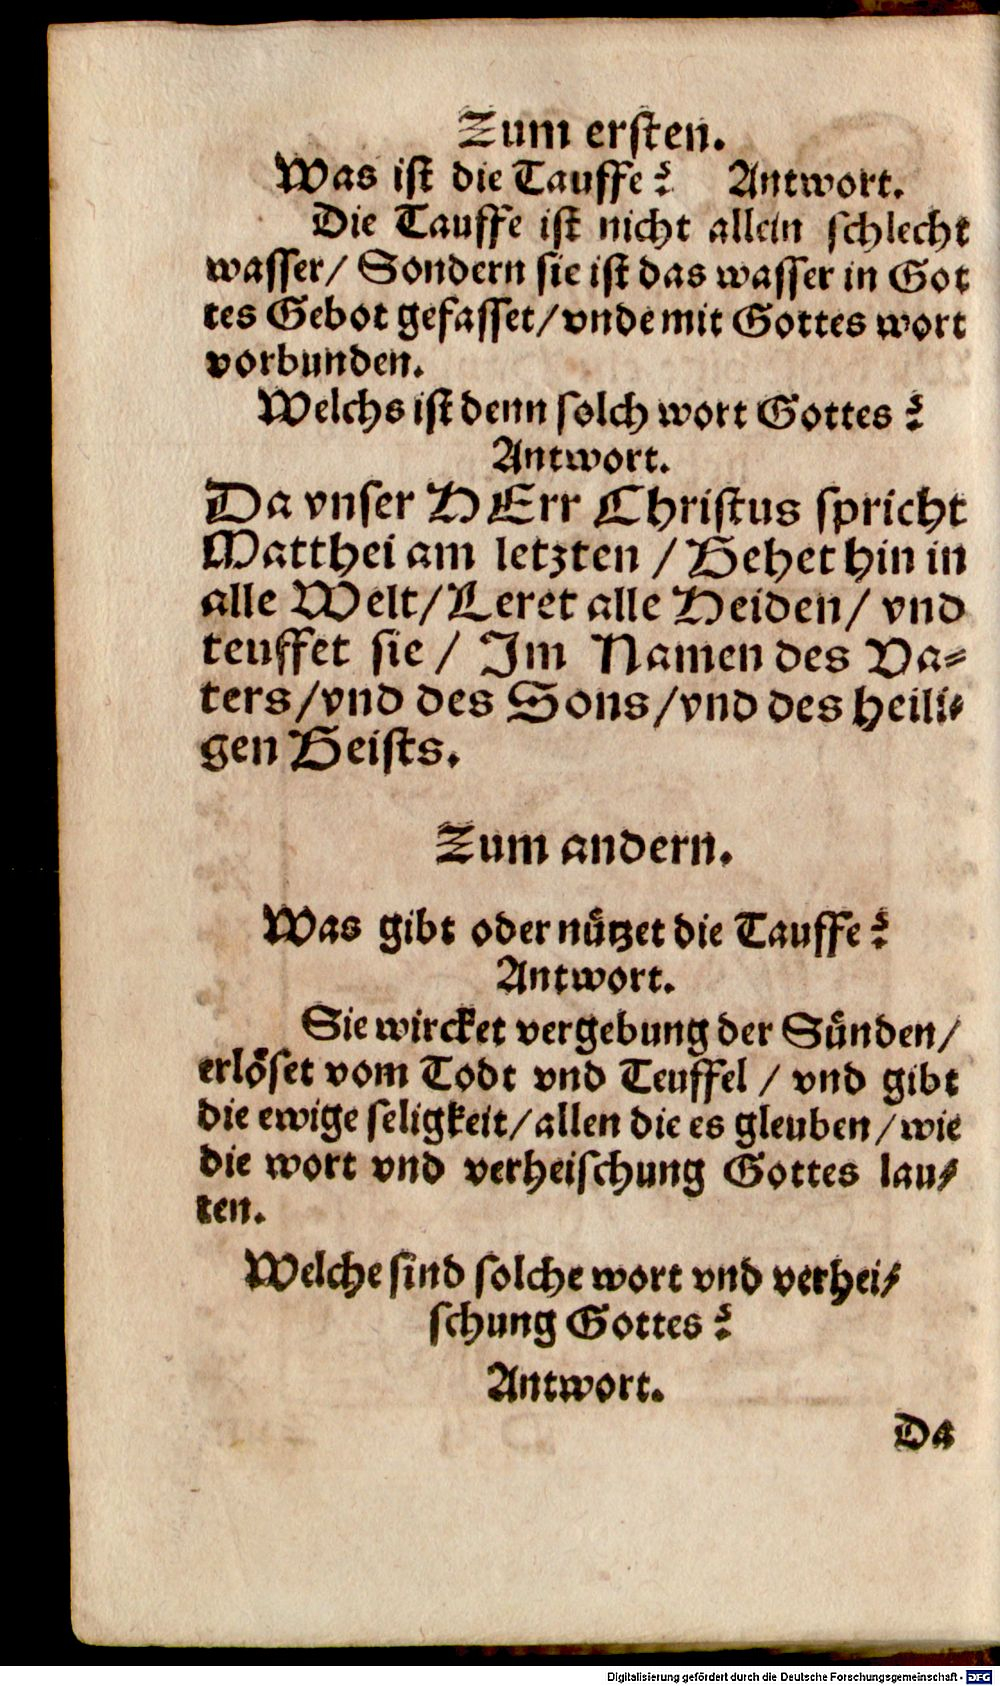 Zum ersten.
Was ist die Tauffe? Antwort.
Die Tauffe ist nicht allein schlecht
wasser/ Sondern sie ist das wasser in Got
tes Gebot gefasset/ vnde mit Gottes wort
vorbunden.
Welchs ist denn solch wort Gottes?
Antwort.
Da vnser HErr Christus spricht
Matthei am letzten / Gehet hin in
alle Welt/ Leret alle Heiden/ vnd
teuffet sie / Im Namen des Va-
ters/ vnd des Sons/ vnd des heili-
gen Geists.
Zum andern.
Was gibt oder nützet die Tauffe?
Antwort.
Sie wircket vergebung der Sünden/
erlöset vom Todt vnd Teuffel / vnd gibt
die ewige seligkeit/ allen die es gleuben/ wie
die wort vnd verheischung Gottes lau-
ten.
Welche sind solche wort vnd verhei-
schung Gottes?
Antwort.
Da
Digitalisierung gefördert durch die Deutsche Forschungsgemeinschaft - DFG